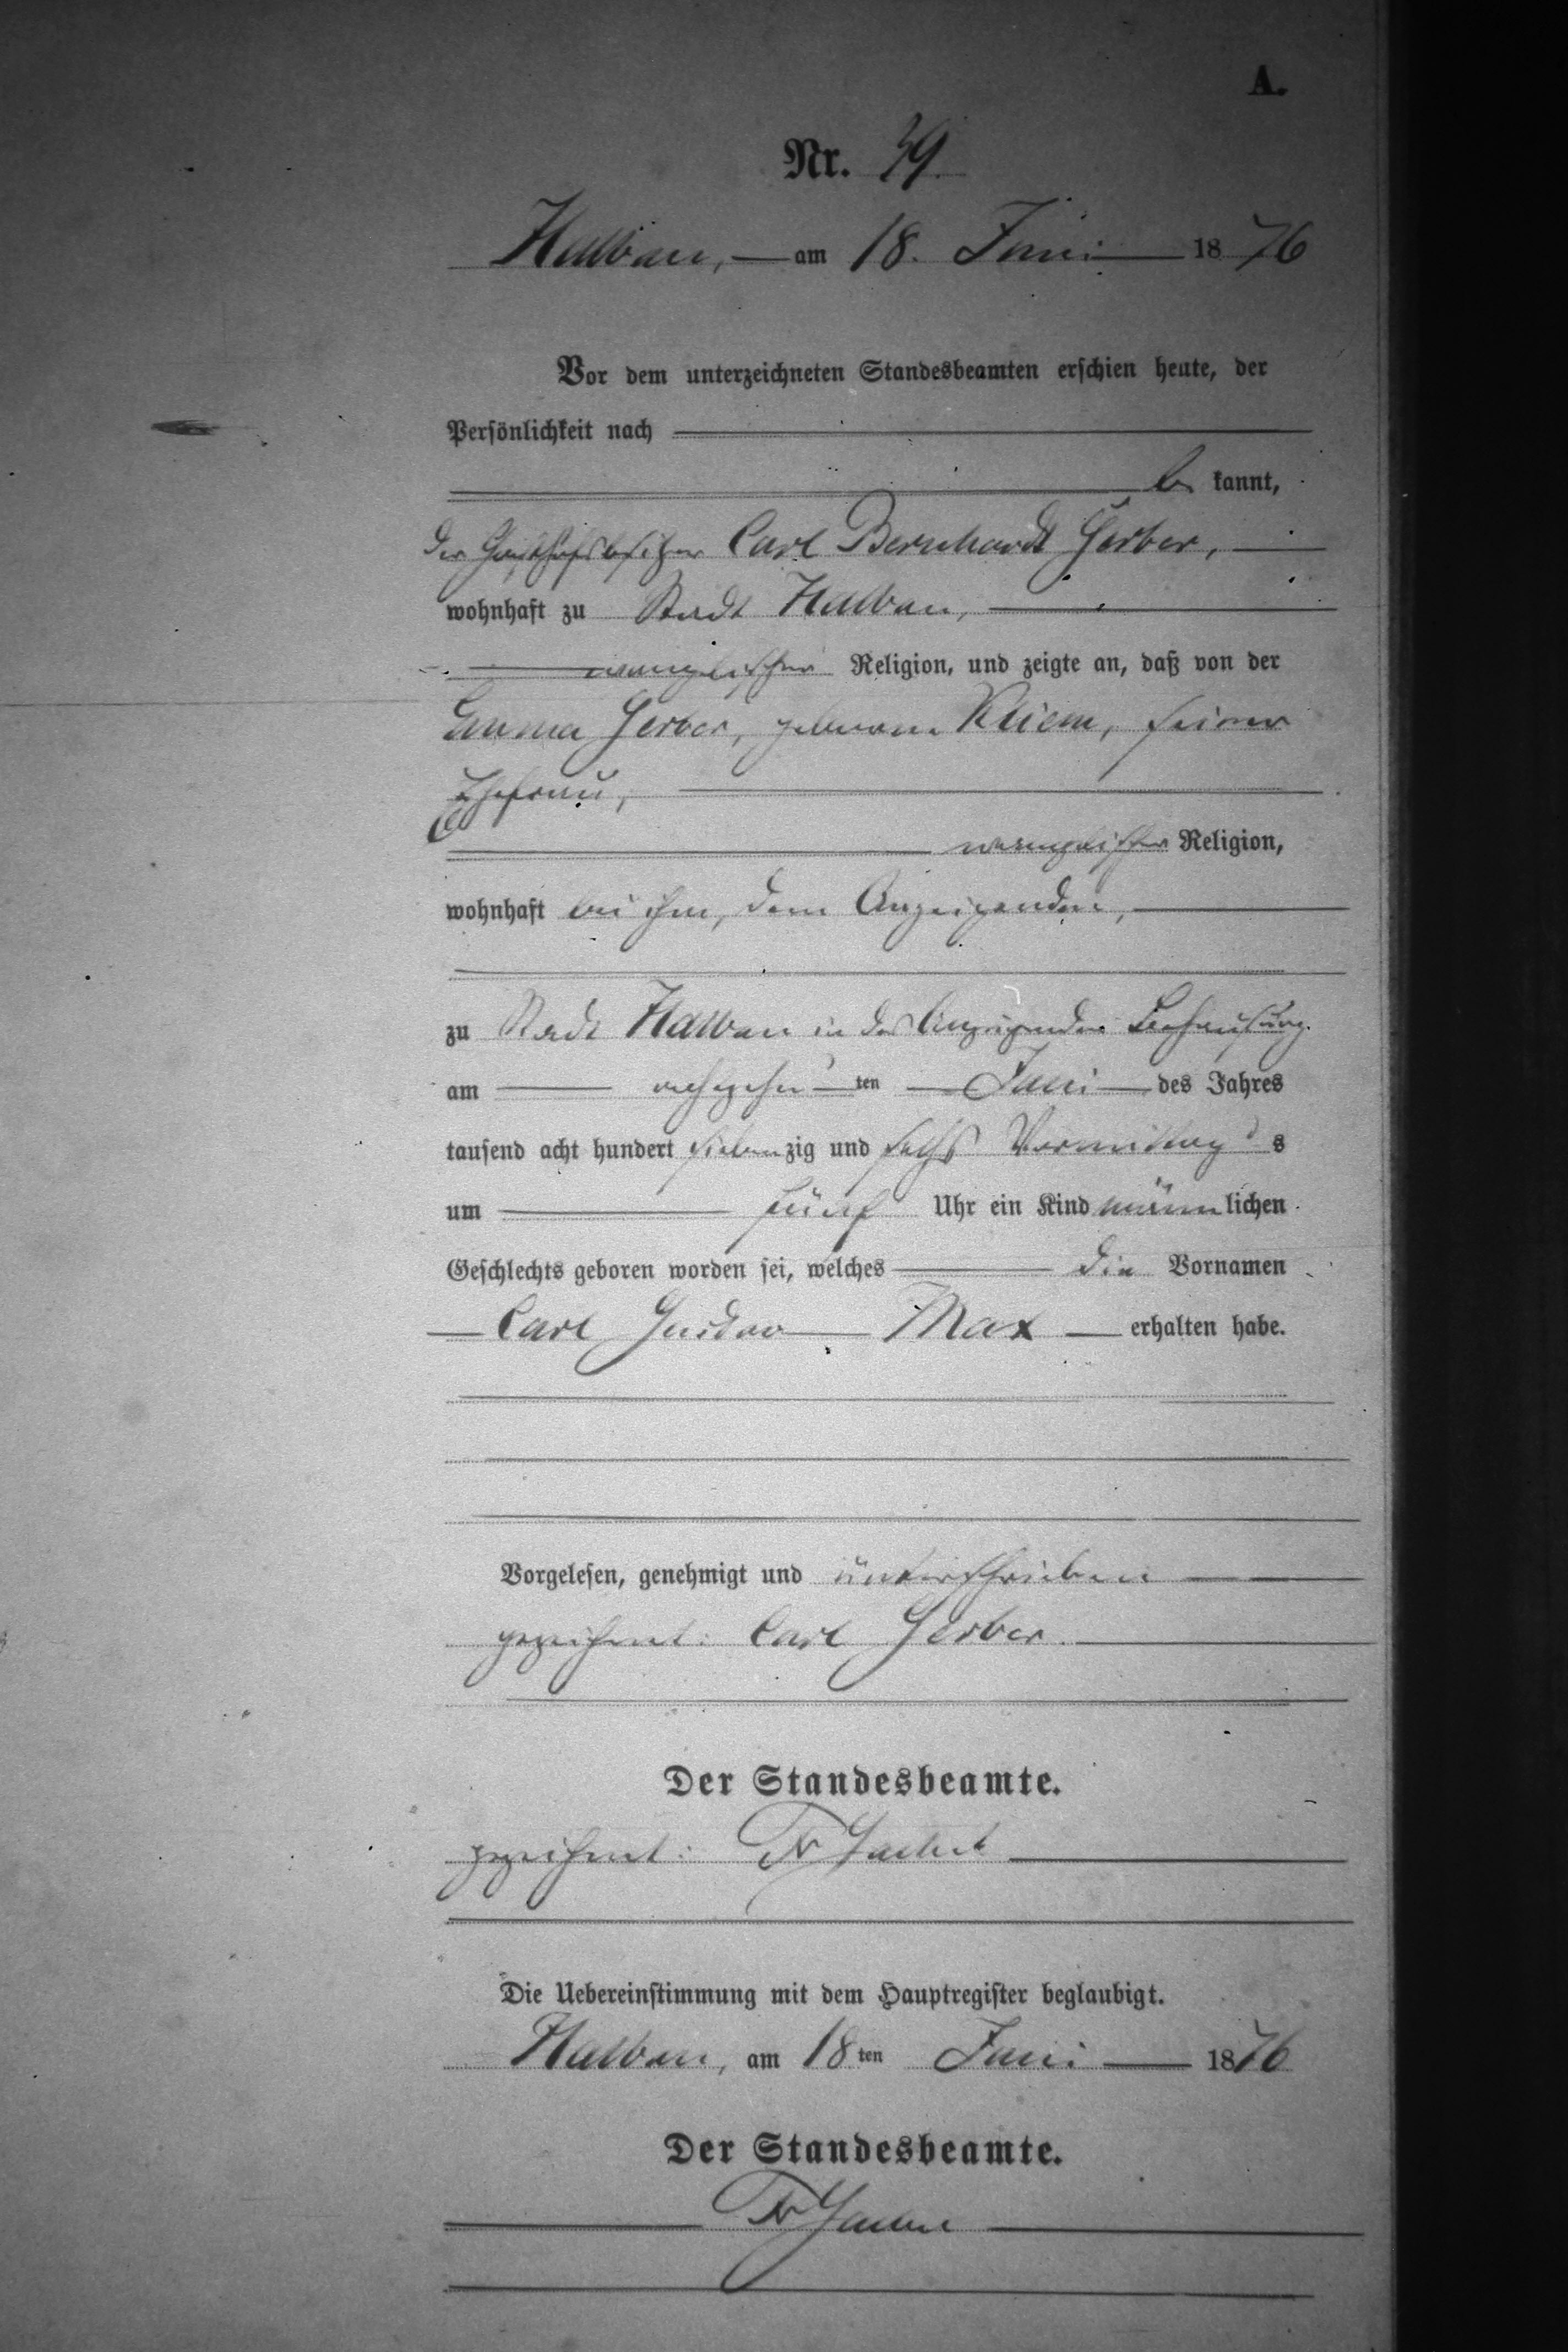 A.
Nr. 39.
Halbau, am 18. Juni 1876
Vor dem unterzeichneten Standesbeamten erschien heute, der
Persönlichkeit nach
be kannt,
der Gasthofsbesitzer Carl Bernhardt Gerber,
wohnhaft zu Stadt Halbau,
evangelischer Religion, und zeigte an, daß von der
Emma Gerber, geborene Kliem, seiner
Ehefrau,
evangelischer Religion,
wohnhaft bei ihm, dem Anzeigenden,
zu Stadt Halbau in des Anzeigenden Behausung
am achtzehnten Juni des Jahres
tausend acht hundert siebenzig und sechs Vormittags
um fünf Uhr ein Kind männlichen
Geschlechts geboren worden sei, welches die Vornamen
Carl Gustav Max erhalten habe.
Vorgelesen, genehmigt und unterschrieben
gezeichnet: Carl Gerber.
Der Standesbeamte.
gezeichnet:
Die Uebereinstimmung mit dem Hauptregister beglaubigt.
Halbau, am 18ten Juni 1876
Der Standesbeamte.